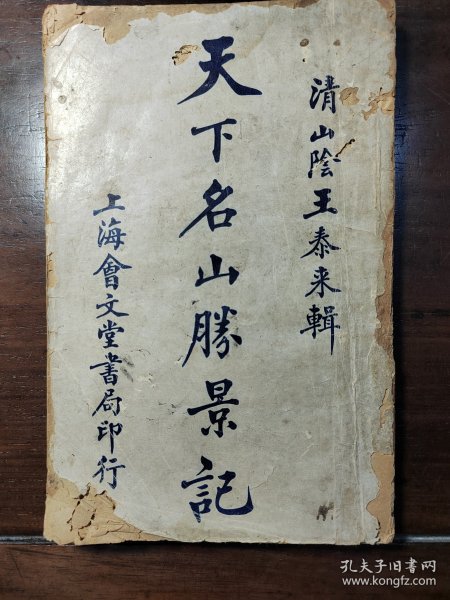 清山陰王泰来輯
天下名山勝景記
上海會文堂書局印行
孔夫子旧书网
www.kongfz.com